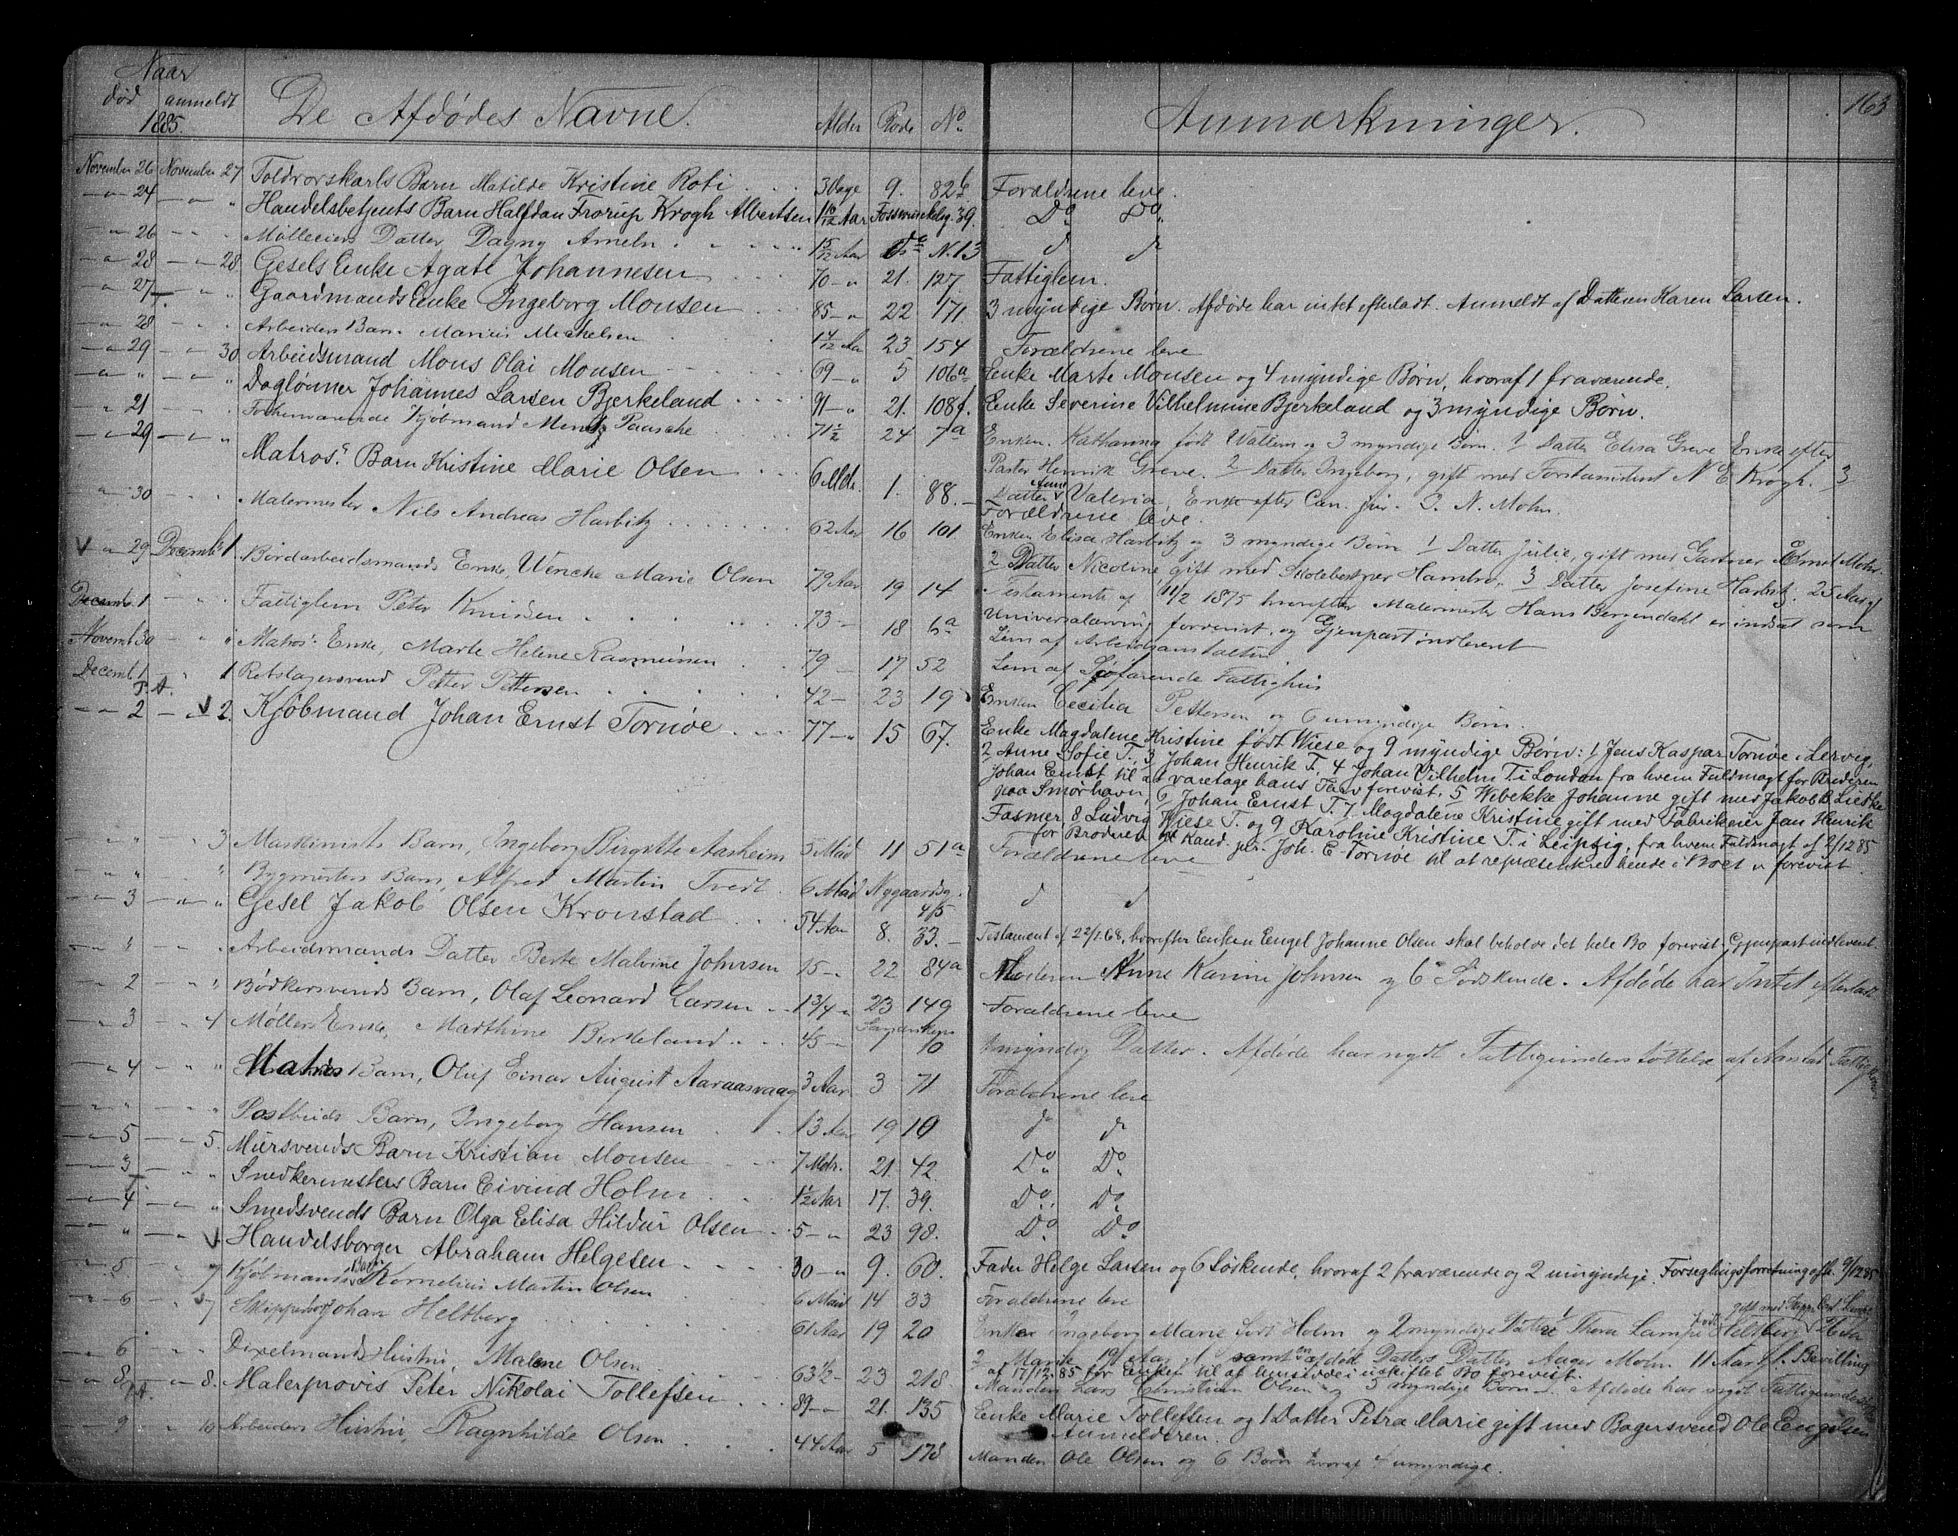 163
Naar
død anmeldt De Afdødes Navne. Alder Rode No. Anmærkninger.
1885.
November 26 November 27 Toldrorskarls Barn Matilde Kristine Roti 3 Dage 9. 82b Forældrene leve.
" 24 " " Handelsbetjents Barn Halfdan Trorup Krogh Albertsen 1 10/12 Aar 39. Do Do.
" 26 " " Datter, Dagny Ameln 1 5/12 Aar Do N. 13 d d
" 28 " 28 Gesels Enke Agate Johannesen 70 " 21. 127 Fattiglem.
" 27 " " Gaardmands Enke Ingeborg Monsen 85 " 22 171. 3 myndige Børn. Afdøde har intet efterladt. Anmeldt af Datteren Karen Larsen.
" 28 " " Arbeiders Barn Marius Mickelsen 1 4/12 Aar 23 154 Forældrene leve
" 29 " 30 Arbeidsmand Mons Olai Monsen 69 " 5 106a Enke Marte Monsen og 4 myndige Børn, hvoraf 1 fraværende.
" " " " Daglønner Johannes Larsen Bjerkeland 91 " 21. 108f. Enke Severine Vilhelmine Bjerkeland og 3 myndige Børn.
" 21 " " Forhenværende Kjøbmand Mentz Paasche 71 1/2 24 7a Enken Katharina født Wallem og 3 myndige Børn. 1 Datter Elisa Greve Enke efter
Pastor Henrik Greve. 2 Datter Ingeborg, gift med Forstassistent N E Krogh. 3
Datter Anne Valeria, Enke efter Can. jur. O. N. Mohn.
" 29 " " Matros. Barn Kristine Marie Olsen 6 Mdr. 1. 88. Forældrene leve.
" 30 " " Malermester Nils Andreas Harbitz 62 Aar 16 101 Enken Elisa Harbitz og 3 myndige Børn 1 Datter Julie, gift med Gartner Ernst Mohr.
2 Datter Nicoline gift med Skolebestyrer Hambro, 3 Datter Josefine Harbitz. 25 Aar gl
" 29 Decemb. 1 Bordarbeidsmands Enke, Wencke Marie Olsen 79 Aar 19 14 Testamente af 11/2 1875 hvorefter Malermester Hans Bergendahl er indsat som
Universalarving forevist, og Gjenpart indleveret
Decemb. 1 " " Fattiglem Peter Knudsen 73 18 6a Lem af Arbeidsanstalten
Novemb. 30 " " Matros. Enke, Marte Helene Rasmussen 79 17 52 Lem af Søfarende Fattighus
Decemb. 1 " 1 Rebslagersvend Petter Pettersen 42 23 19 Enken Cecilia Pettersen og 6 umyndige Børn.
" 2 " 2. Kjøbmand Johan Ernst Tornøe 77 " 15 67. Enke Magdalene Kristine født Wiese og 9 myndige Børn: 1 Jens Kaspar Tornøe i Lervig,
2 Anne Sofie T., 3 Johan Henrik T. 4 Johan Vilhelm T. i London fra hvem Fuldmagt for Broderen
Johan Ernst til at varetage hans Tarv forevist. 5 Wibekke Johanne gift med Jakob B. Liedtke
paa Smørhavn, 6 Johan Ernst T. 7 Magdalene Kristine gift med Fabrikeier Jan Henrik
Fasmer 8 Ludvig Wiese T. og 9 Karoline Kristine T. i Leipzig, fra hvem Fuldmagt af 2/12 85
for Broderen Kand. jur. Joh. E. Tornøe til at repræsentere hende i Boet er forevist.
" " " 3 Maskinists Barn, Ingeborg Birgitte Aasheim 5 Mdr 11 51a Forældrene leve
" " " " Bygmesters Barn, Alfred Martin Tvedt 6 Mdr Nygaardsg. 45 d d
" 3 " " Gesel Jakob Olsen Kronstad 54 Aar 8. 33. Testament af 22/1 68, hvorefter Enken Engel Johanne Olsen skal beholde det hele Bo forevist, Gjenpart indleveret.
" " " " Arbeidsmands Datter Berte Malvine Johnsen 15 " 22 84a Moderen Anne Karine Johnsen og 6 Sødskende. Afdøde har Intet efterladt
" 2 " " Bødkersvends Barn, Olaf Leonard Larsen 1 3/4 " 23 149 Forældrene leve
" 3 " 4 Møllers Enke, Marthine Birkeland 45 10 1 myndig Datter. Afdøde har nydt Fattigunderstøttelse af Aarstad
" 4 " " Matros Barn, Oluf Einar August Aaraasvaag 3 Aar 3 71 Forældrene leve
" " " " Postbuds Barn, Ingeborg Hansen 13 Aar 19 10 d d
" 5 " 5. Mursvends Barn Kristian Monsen 7 Mdr. 21. 42 Do Do
" 3 " " Snedkermesters Barn Eivind Holm 1 1/2 Aar 17. 39. Do. Do.
" 4 " " Smedsvends Barn Olga Elisa Hildur Olsen 5 " 23 98. Do Do
" " " Handelsborger Abraham Helgesen 30 " 9. 60. Fader Helge Larsen og 6 Søskende, hvoraf 2 fraværende og 2 umyndige. Forseglingsforretning afh. 9/12 85
" 5 " 7 Kjøbmands Barn Kornelius Martin Olsen 6 Mdr 14 33 Forældrene leve
" 6 " 7 Skipperborger Johan Heltberg 61 Aar 19 20 Enke Ingeborg Marie født Holm og 2 myndige Døttre 1 Thora Lampe født Heltberg
2 Marie 19 Aar samt en afdød Datters Datter Mohn 11 Aar gl. Bevilling
af 17/12 85 for Enken til at hensidde i uskiftet Bo forevist.
" 6 " " Dixelmands Hustru, Malene Olsen 63 1/2 23 218 Manden Lars Christian Olsen og 3 myndige Børn. Afdøde har nydt Fattigunderst.
" 8 " 8. Malerprovis Peter Nikolai Tollefsen 89 " 21. 135 Enke Marie Tollefsen og 1 Datter Petra Marie gift med Bagersvend Ole Engelsen
Anmelderen.
" 9 " 10 Arbeiders Hustru, Ragnhilde Olsen 44 Aar 5 178 Manden Ole Olsen og 6 Børn hvoraf 4 umyndige.